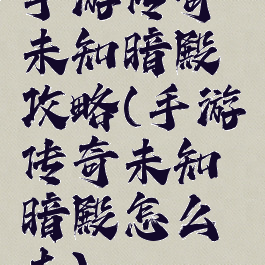 手游传奇
未知暗殿
攻略(手游
传奇未知
暗殿怎么
走)